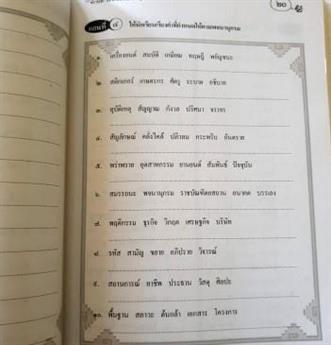 ๒๐
แผนที่ ๔ ให้นักเรียนเรียงคำที่กำหนดให้ตามพจนานุกรม
๑. เครื่องยนต์ สมบัติ เกษียณ ทฤษฎี พยัญชนะ
๒. สติกเกอร์ เกษตรกร ศัตรู ระบาด อธิบาย
๓. อุบัติเหตุ สัญญาณ กังวล ปริศนา จราจร
๔. สัญลักษณ์ คลั่งไคล้ ปลิวลม กระหริบ อันตราย
๕. พร่ำพราย อุตสาหกรรม ยานยนต์ สัมพันธ์ ปัจจุบัน
๖. สมรรถนะ พจนานุกรม ราชบัณฑิตยสถาน อนาคต บรรเลง
๗. พฤติกรรม ธุรกิจ วิกฤต เศรษฐกิจ บริษัท
๘. รหัส สามัญ ขยาย อภิปราย วิจารณ์
๙. สถานการณ์ อาชีพ ประธาน วัสดุ ศิลปะ
๑๐. พื้นฐาน สภาวะ ต้มกล้า เอกสาร โครงการ